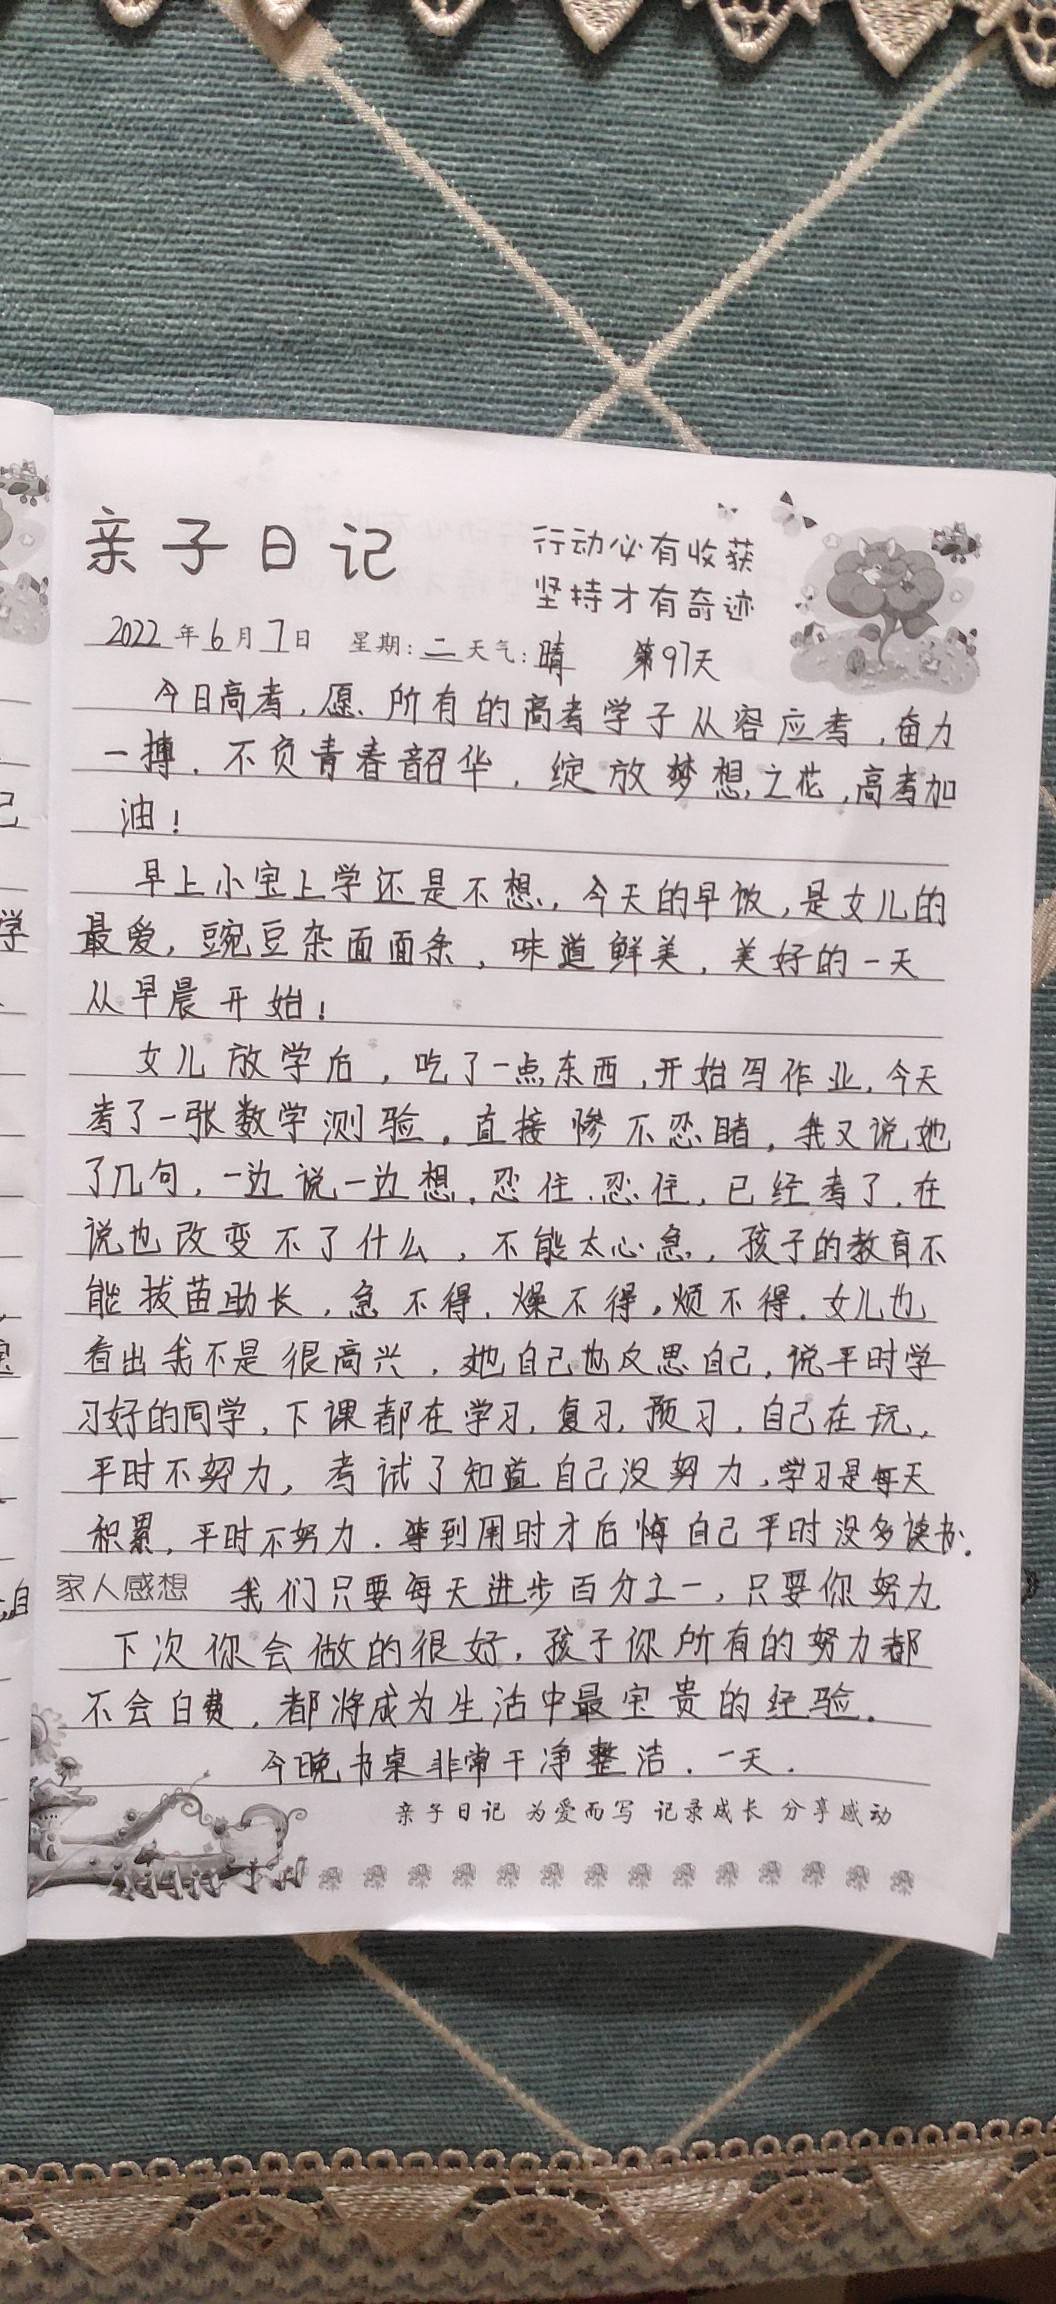 亲子日记
行动必有收获
坚持才有奇迹
2022年6月7日 星期:二 天气:晴 第97天
今日高考,愿所有的高考学子从容应考,奋力
一搏.不负青春韶华,绽放梦想之花,高考加
油!
早上小宝上学还是不想,今天的早饭,是女儿的
最爱,豌豆杂面面条,味道鲜美,美好的一天
从早晨开始!
女儿放学后,吃了一点东西,开始写作业,今天
考了一张数学测验。直接惨不忍睹,我又说她
了几句,一边说一边想,忍住.忍住,已经考了.在
说也改变不了什么,不能太心急,孩子的教育不
能拔苗助长,急不得.燥不得。烦不得.女儿也
看出我不是很高兴,她自己也反思自己,说平时学
习好的同学,下课都在学习,复习,预习,自己在玩,
平时不努力,考试了知道自己没努力,学习是每天
积累,平时不努力.等到用时才后悔自己平时没多读书.
家人感想 我们只要每天进步百分之一,只要你努力
下次你会做的很好,孩子你所有的努力都
不会白费,都将成为生活中最宝贵的经验。
今晚书桌非常干净整洁.一天.
亲子日记 为爱而写 记录成长 分享感动
己
学
自